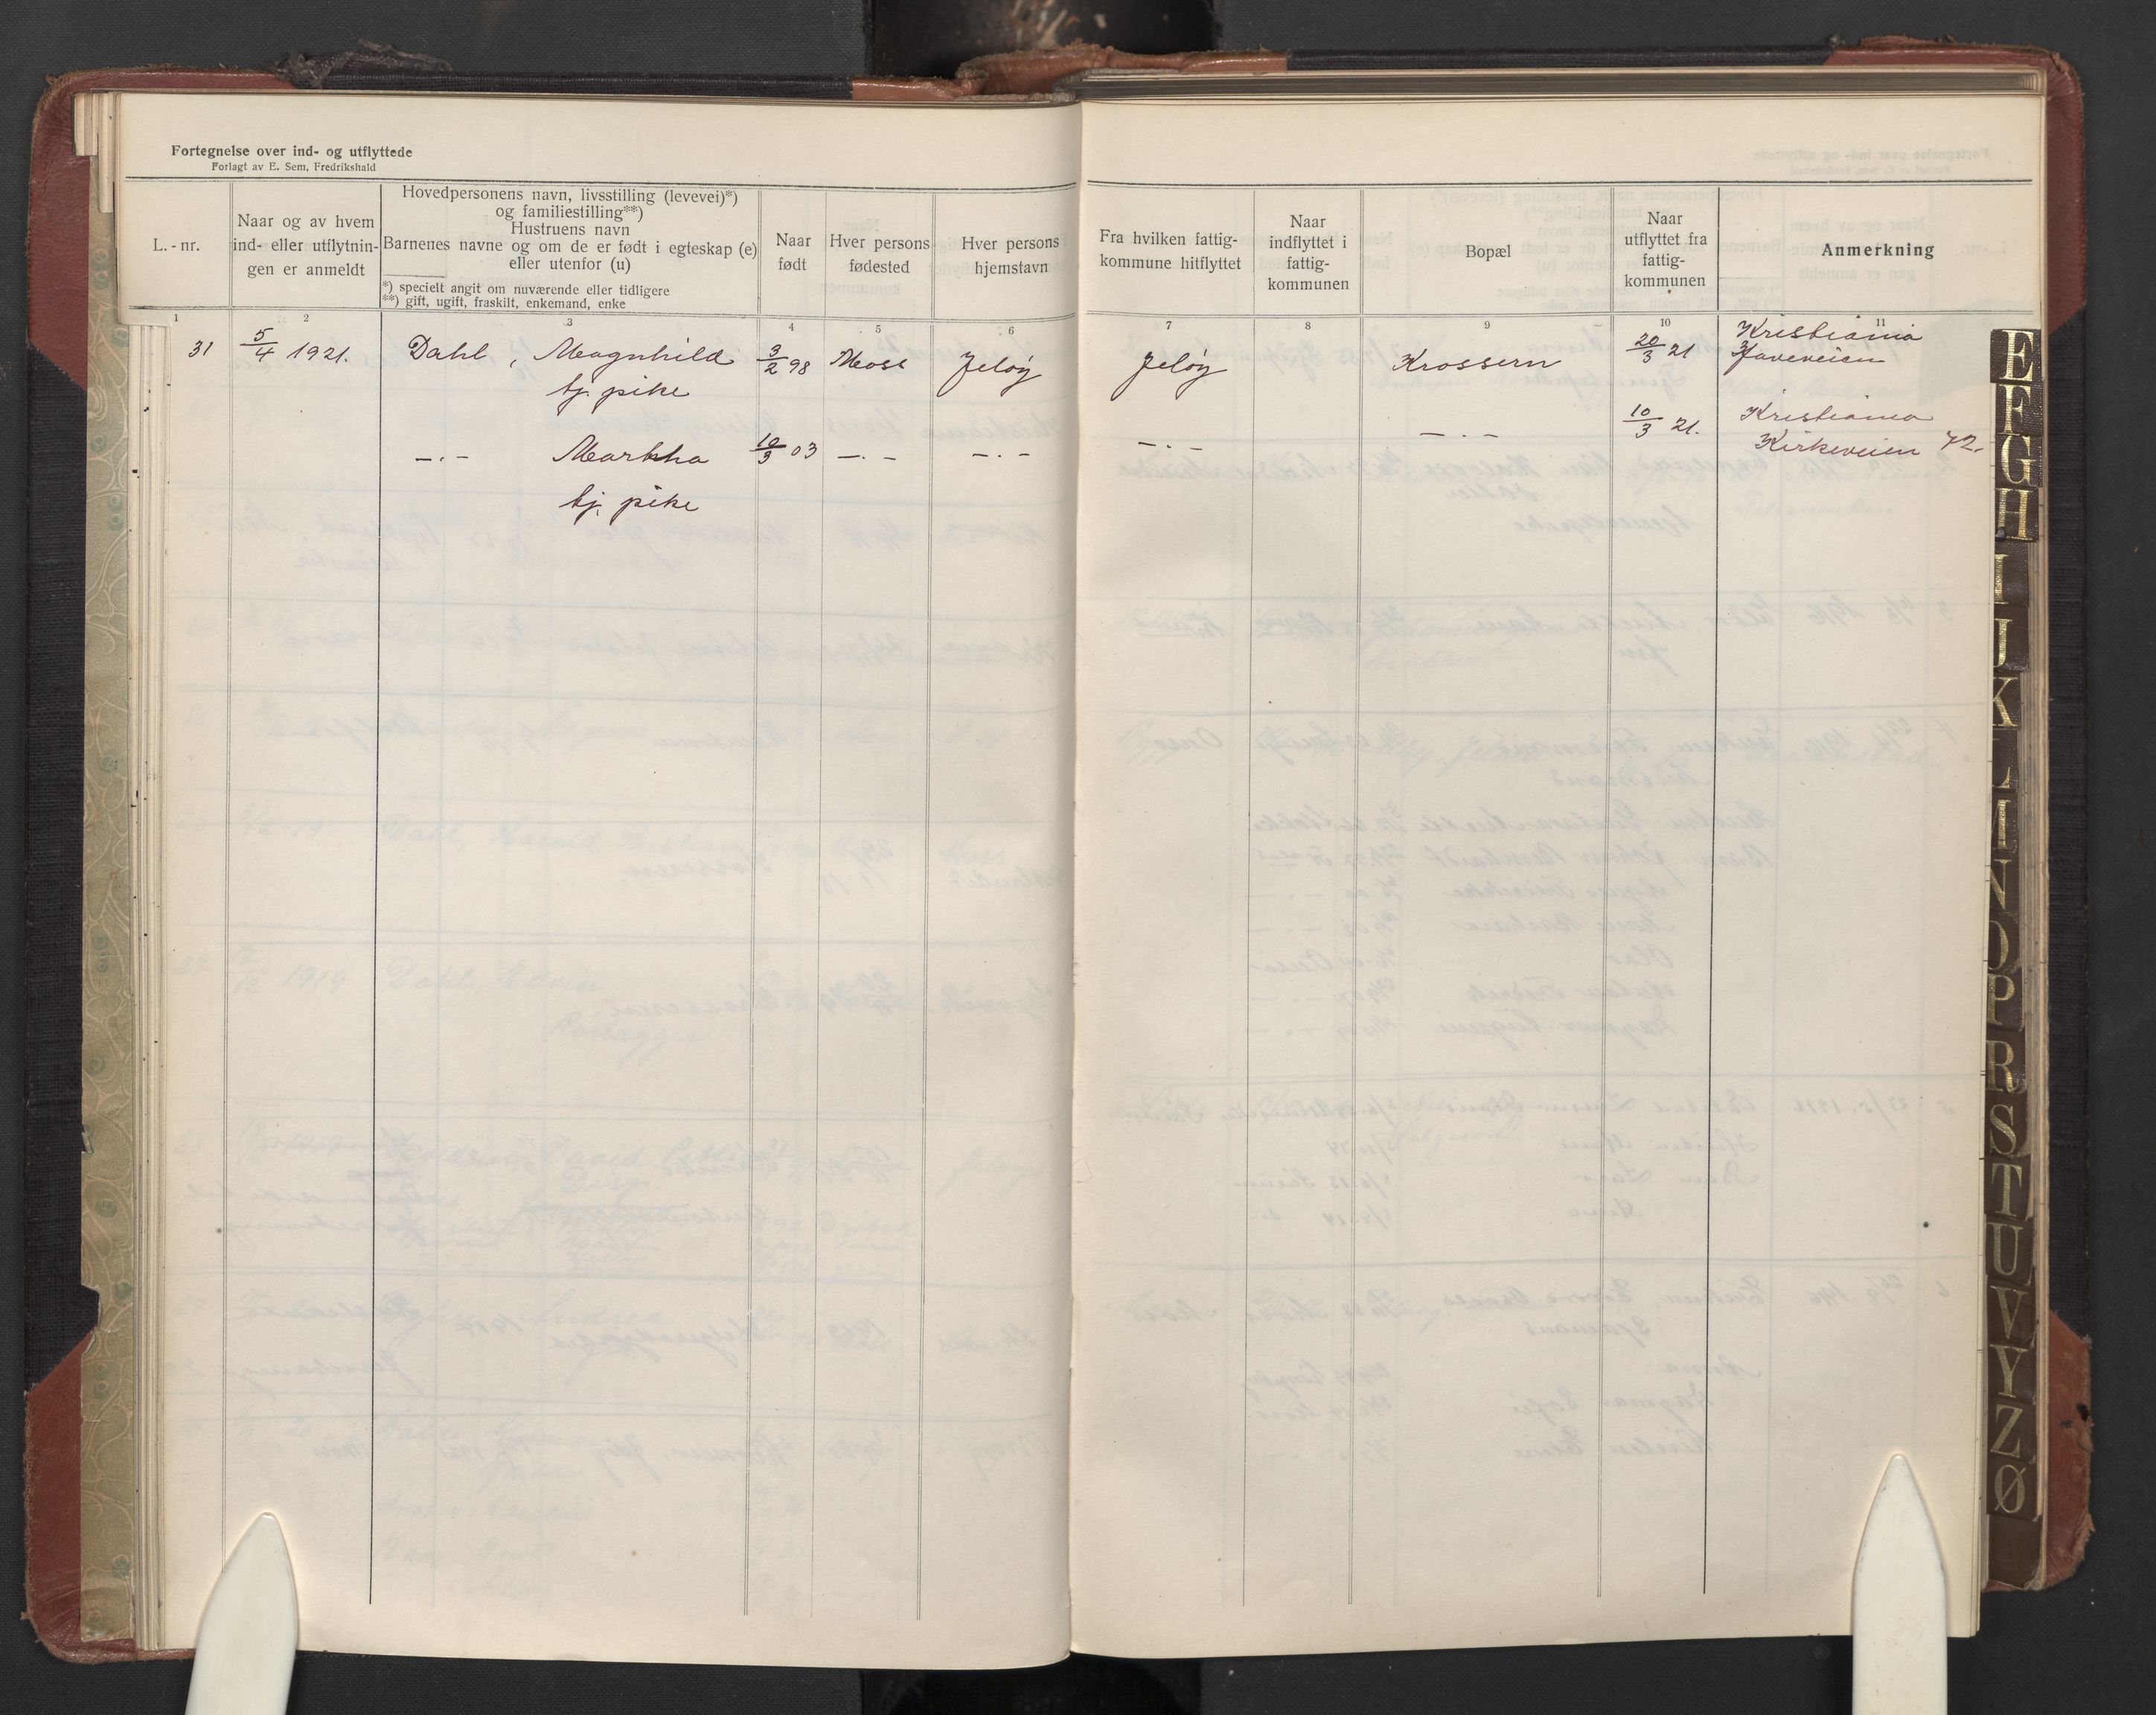 Fortegnelse over ind- og utflyttede
Forlagt av E. Sem, Fredrikshald
L.-nr.
Naar og av hvem
ind- eller utflytnin-
gen er anmeldt
Hovedpersonens navn, livsstilling (levevei)*)
og familiestilling**)
Hustruens navn
Barnenes navne og om de er født i egteskap (e)
eller utenfor (u)
*) specielt angit om nuværende eller tidligere
**) gift, ugift, fraskilt, enkemand, enke
Naar
født
Hver persons
fødested
Hver persons
hjemstavn
Fra hvilken fattig-
kommune hitflyttet
Naar
indflyttet i
fattig-
kommunen
Bopæl
Naar
utflyttet fra
fattig-
kommunen
Anmerkning
1 2 3 4 5 6 7 8 9 10 11
31 5/4 1921. Dahl, Magnhild 3/2 98 Moss Jeløy Jeløy Krossern 20/3 21 Kristiania
tj. pike
—.— Martha 10/3 03 —.— —.— —.— —.— 10/3 21. Kristiania
Kirkeveien 72.
tj. pike
E
F
G
H
I
J
K
L
M
N
O
P
R
S
T
U
V
Y
Z
Ø